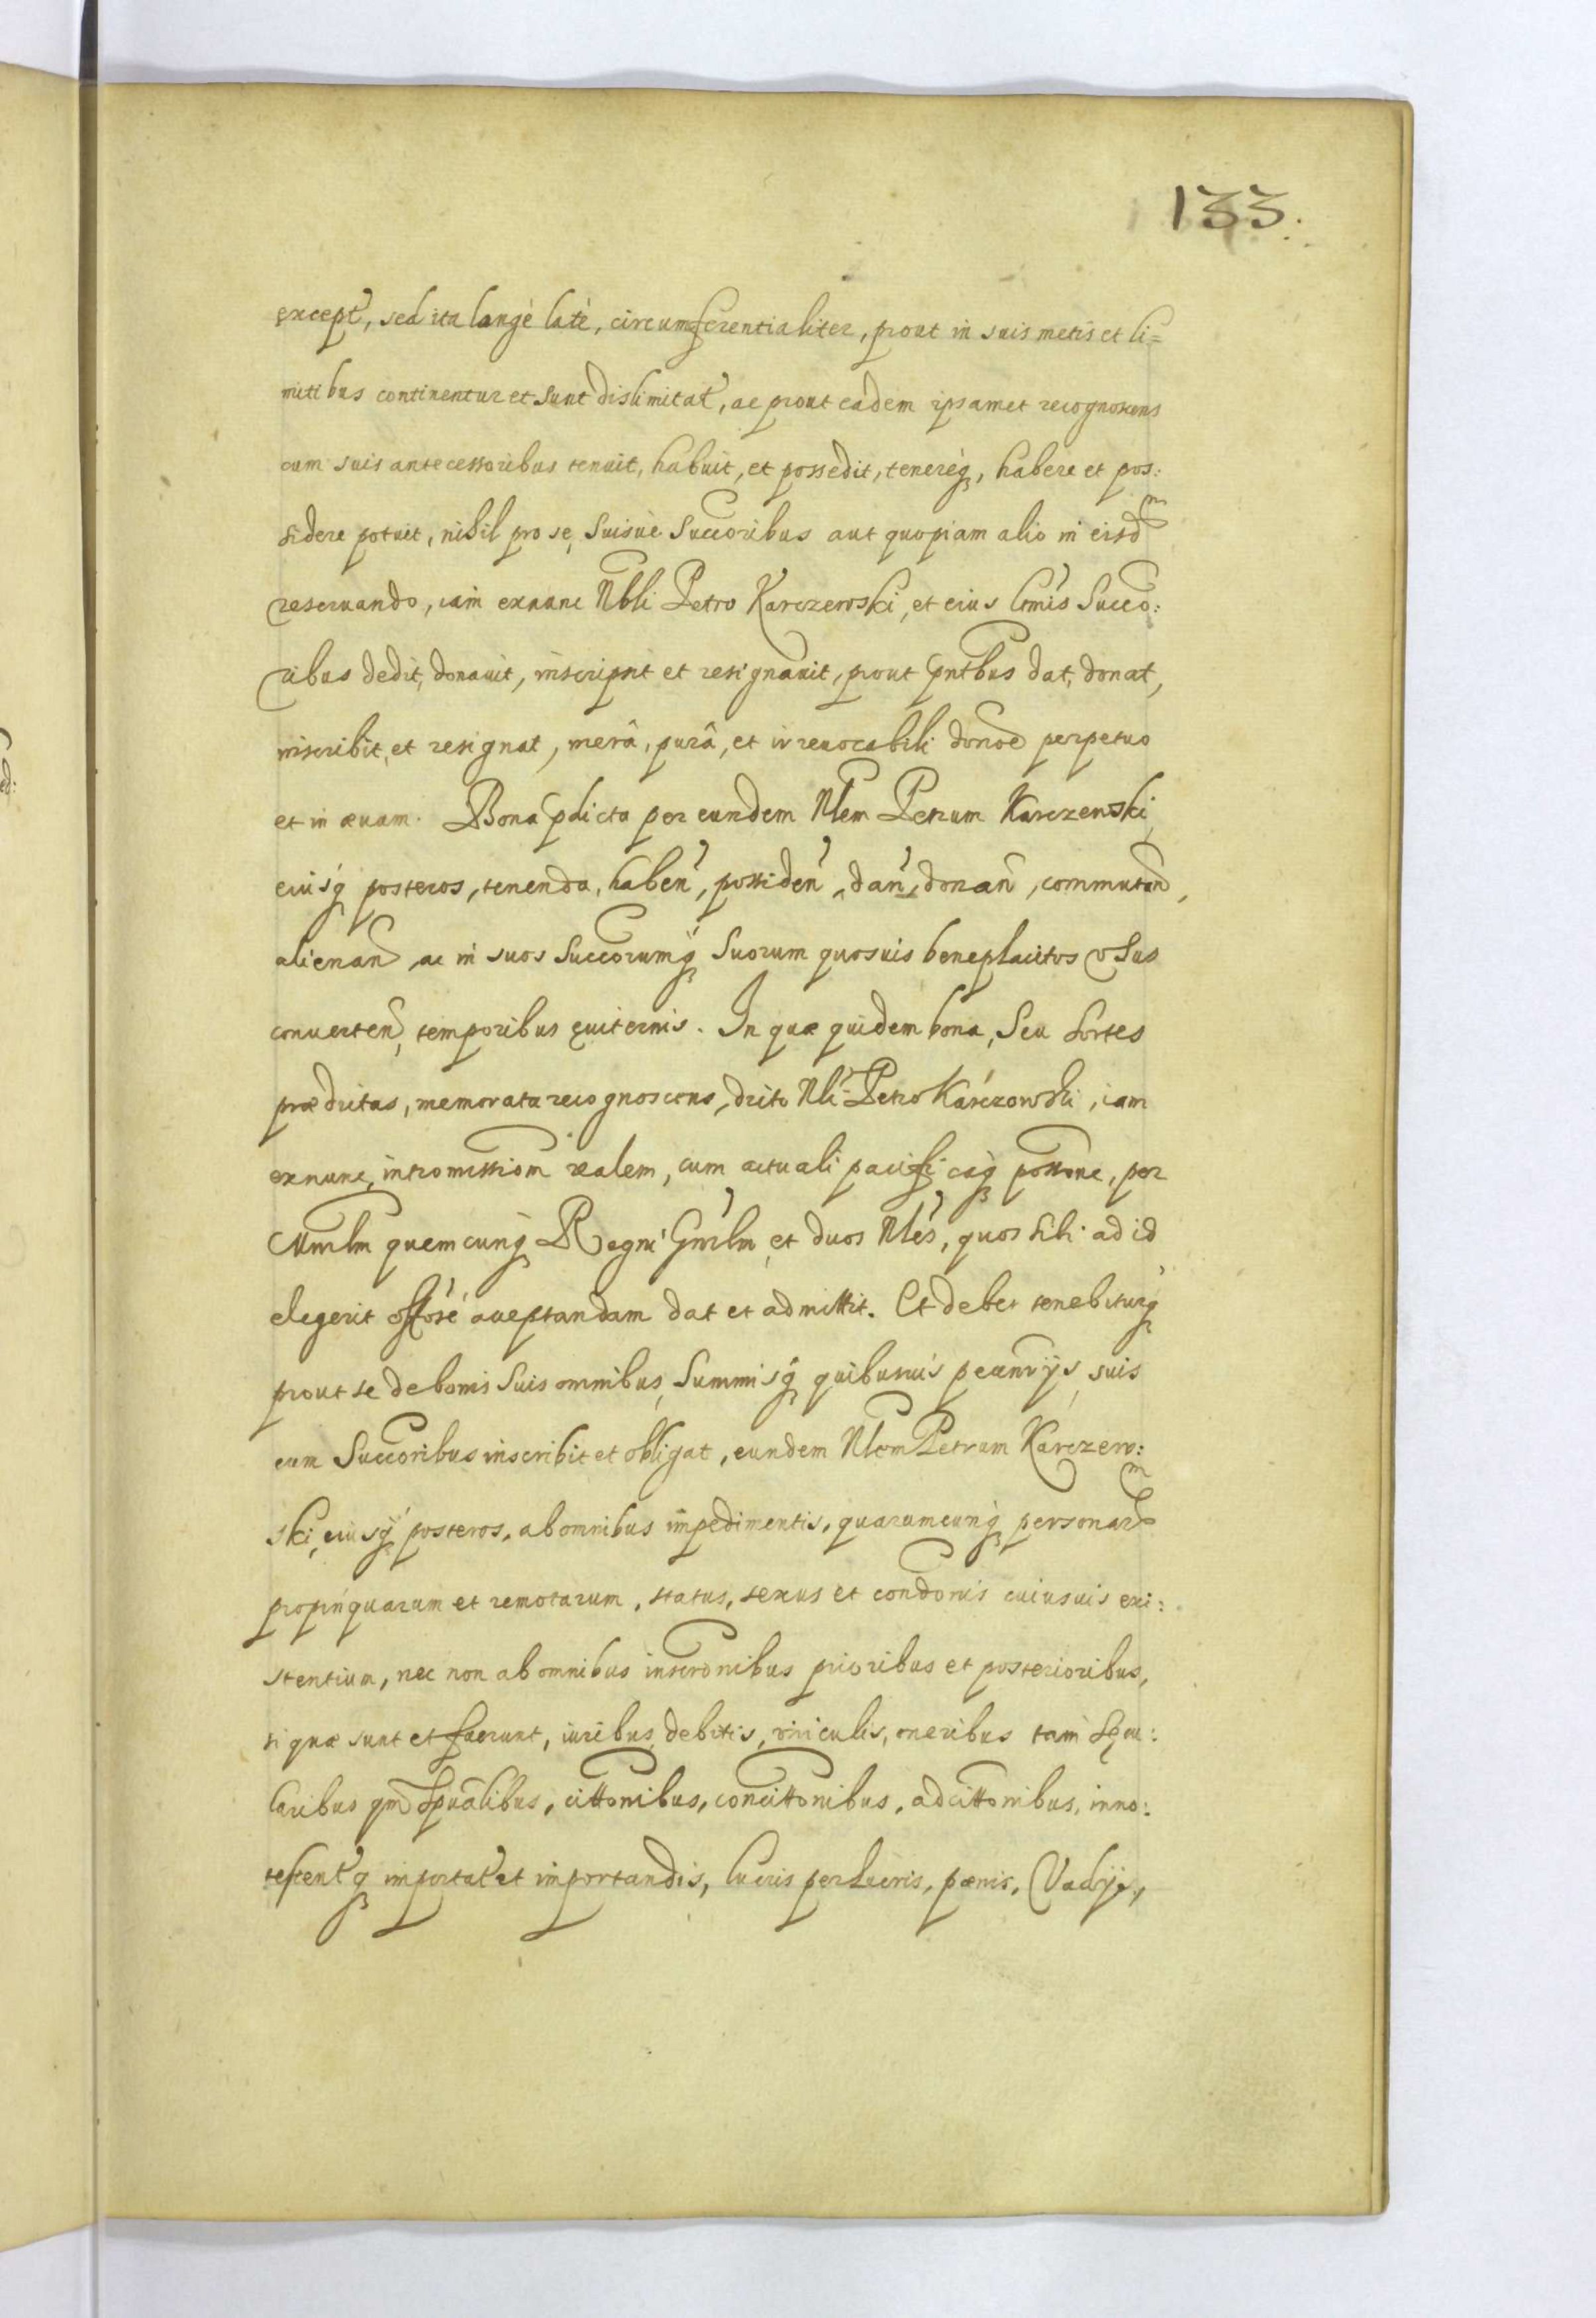 133.
except, sed ita longè latè, circumferentialiter, prout in suis metis et li=
mitibus continentur et sunt dislimitat, ac prout eadem ipsamet recognoscens
cum suis antecessoribus tenuit, habuit, et possedit, tenereq, habere et pos:
sidere potuit, nihil pro se, suisuè Succoribus aut quopiam alio in eisdm
reseruando, iam exnunc Nbli Petro Karczewski, et eius Lmis Succo:
ribus dedit, donauit, inscripsit et resignauit, prout pntbus dat, donat,
inscribit, et resignat, merâ, purâ, et irreuocabili donoe perpetuo
et in æuum. Bona pdicta per eundem Nlem Petrum Karczewski,
eiusq posteros, tenenda, haben, possiden, dan, donan, commutan,
alienan ac in suos Succorumq Suorum quosuis beneplacitos vsus
conuerten, temporibus æuiternis. In quæ quidem bona, Seu Sortes
prædictas, memorata recognoscens, dicto Nli Petro Karczewski, iam
exnunc, intromissiom realem, cum actuali pacificaq possone, per
Mnrlm quemcunq Regni Gnrlm et duos Nles, quos sibi ad id
elegerit offose acceptandam dat et admittit. Et debet tenebiturq
prout se de bonis suis omnibus, Summisq quibusuis pecunijs, suis
cum Succoribus inscribit et obligat, eundem Nlem Petrum Karczew:
ski, eiusq posteros, ab omnibus impedimentis, quarumcunq personarm
propinquarum et remotarum, status, sexus et condonis cuiusuis exi:
stentium, nec non ab omnibus inscronibus prioribus et posterioribus,
si quæ sunt et fuerunt, iuribus, debitis, vinculis, oneribus tam Sęcu:
laribus qm Spualibus, cittonibus, concittonibus, adcittonibus, inno:
tescentq importat et importandis, lucris perlucris, pænis, Vadijs,